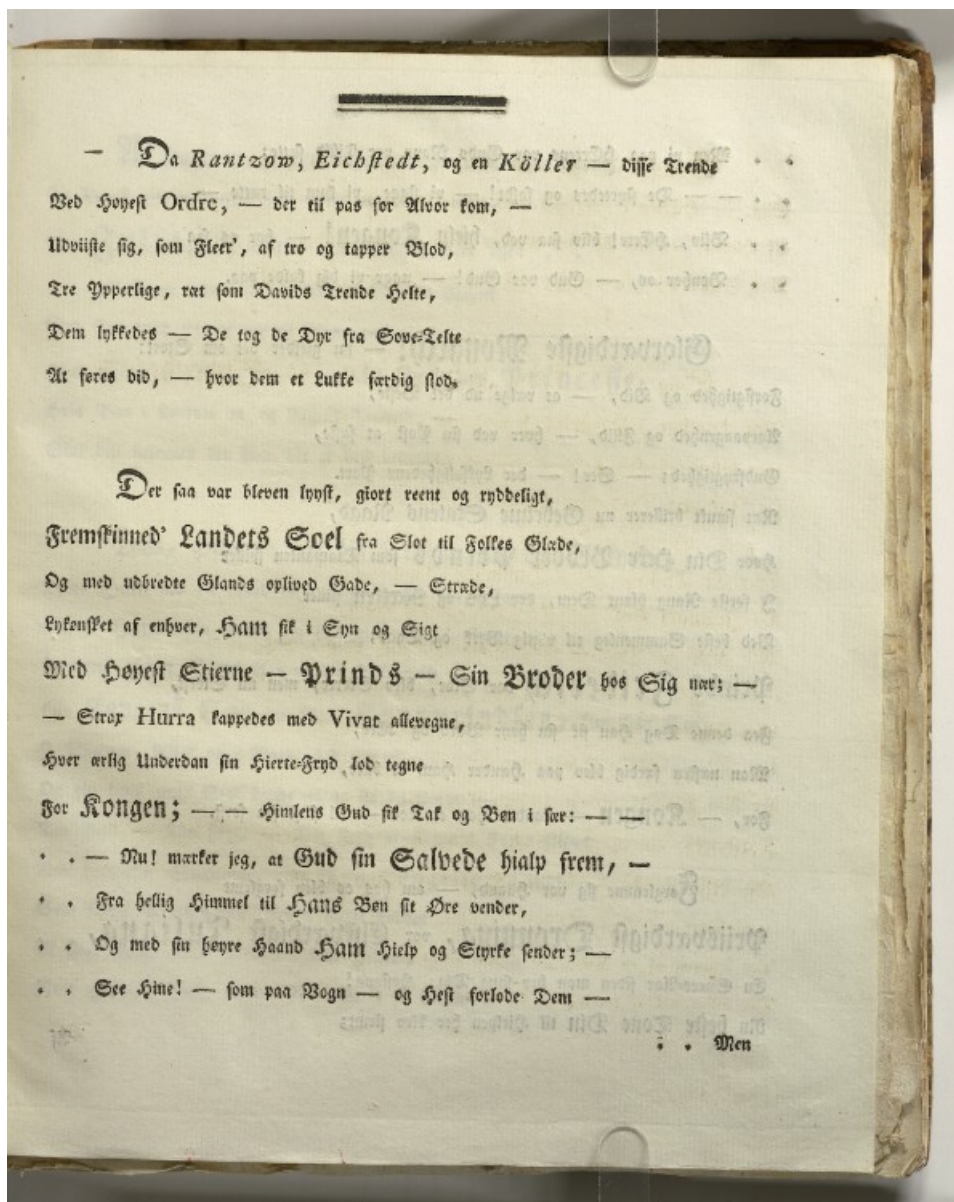 — Da Rantzow, Eichstedt, og en Köller — disse Trende
Ved Høyest Ordre, — der til pas for Alvor kom, —
Udviiste sig, som Fleer', af tro og tapper Blod,
Tre Ypperlige, ræt som Davids Trende Helte,
Dem lykkedes — De tog de Dyr fra Sove-Telte
At føres did, — hvor dem et Lukke færdig stod.
Der saa var bleven lyyst, giort reent og ryddeligt,
Fremskinned' Landets Soel fra Slot til Folkes Glæde,
Og med udbredte Glands oplived Gade, — Stræde,
Lykønsket af enhver, Ham fik i Syn og Sigt
Med Høyest Stierne — Prinds — Sin Broder hos Sig nær; —
— Strax Hurra kappedes med Vivat allevegne,
Hver ærlig Underdan sin Hierte-Fryd lod tegne
For Kongen; — — Himlens Gud fik Tak og Bøn i sær: — —
• • — Nu! mærker jeg, at Gud sin Salvede hialp frem, —
• • Fra hellig Himmel til Hans Bøn sit Øre vender,
• • Og med sin høyre Haand Ham Hielp og Styrke sender; —
• • See Hine! — som paa Vogn — og Hest forlode Dem —
• • Men